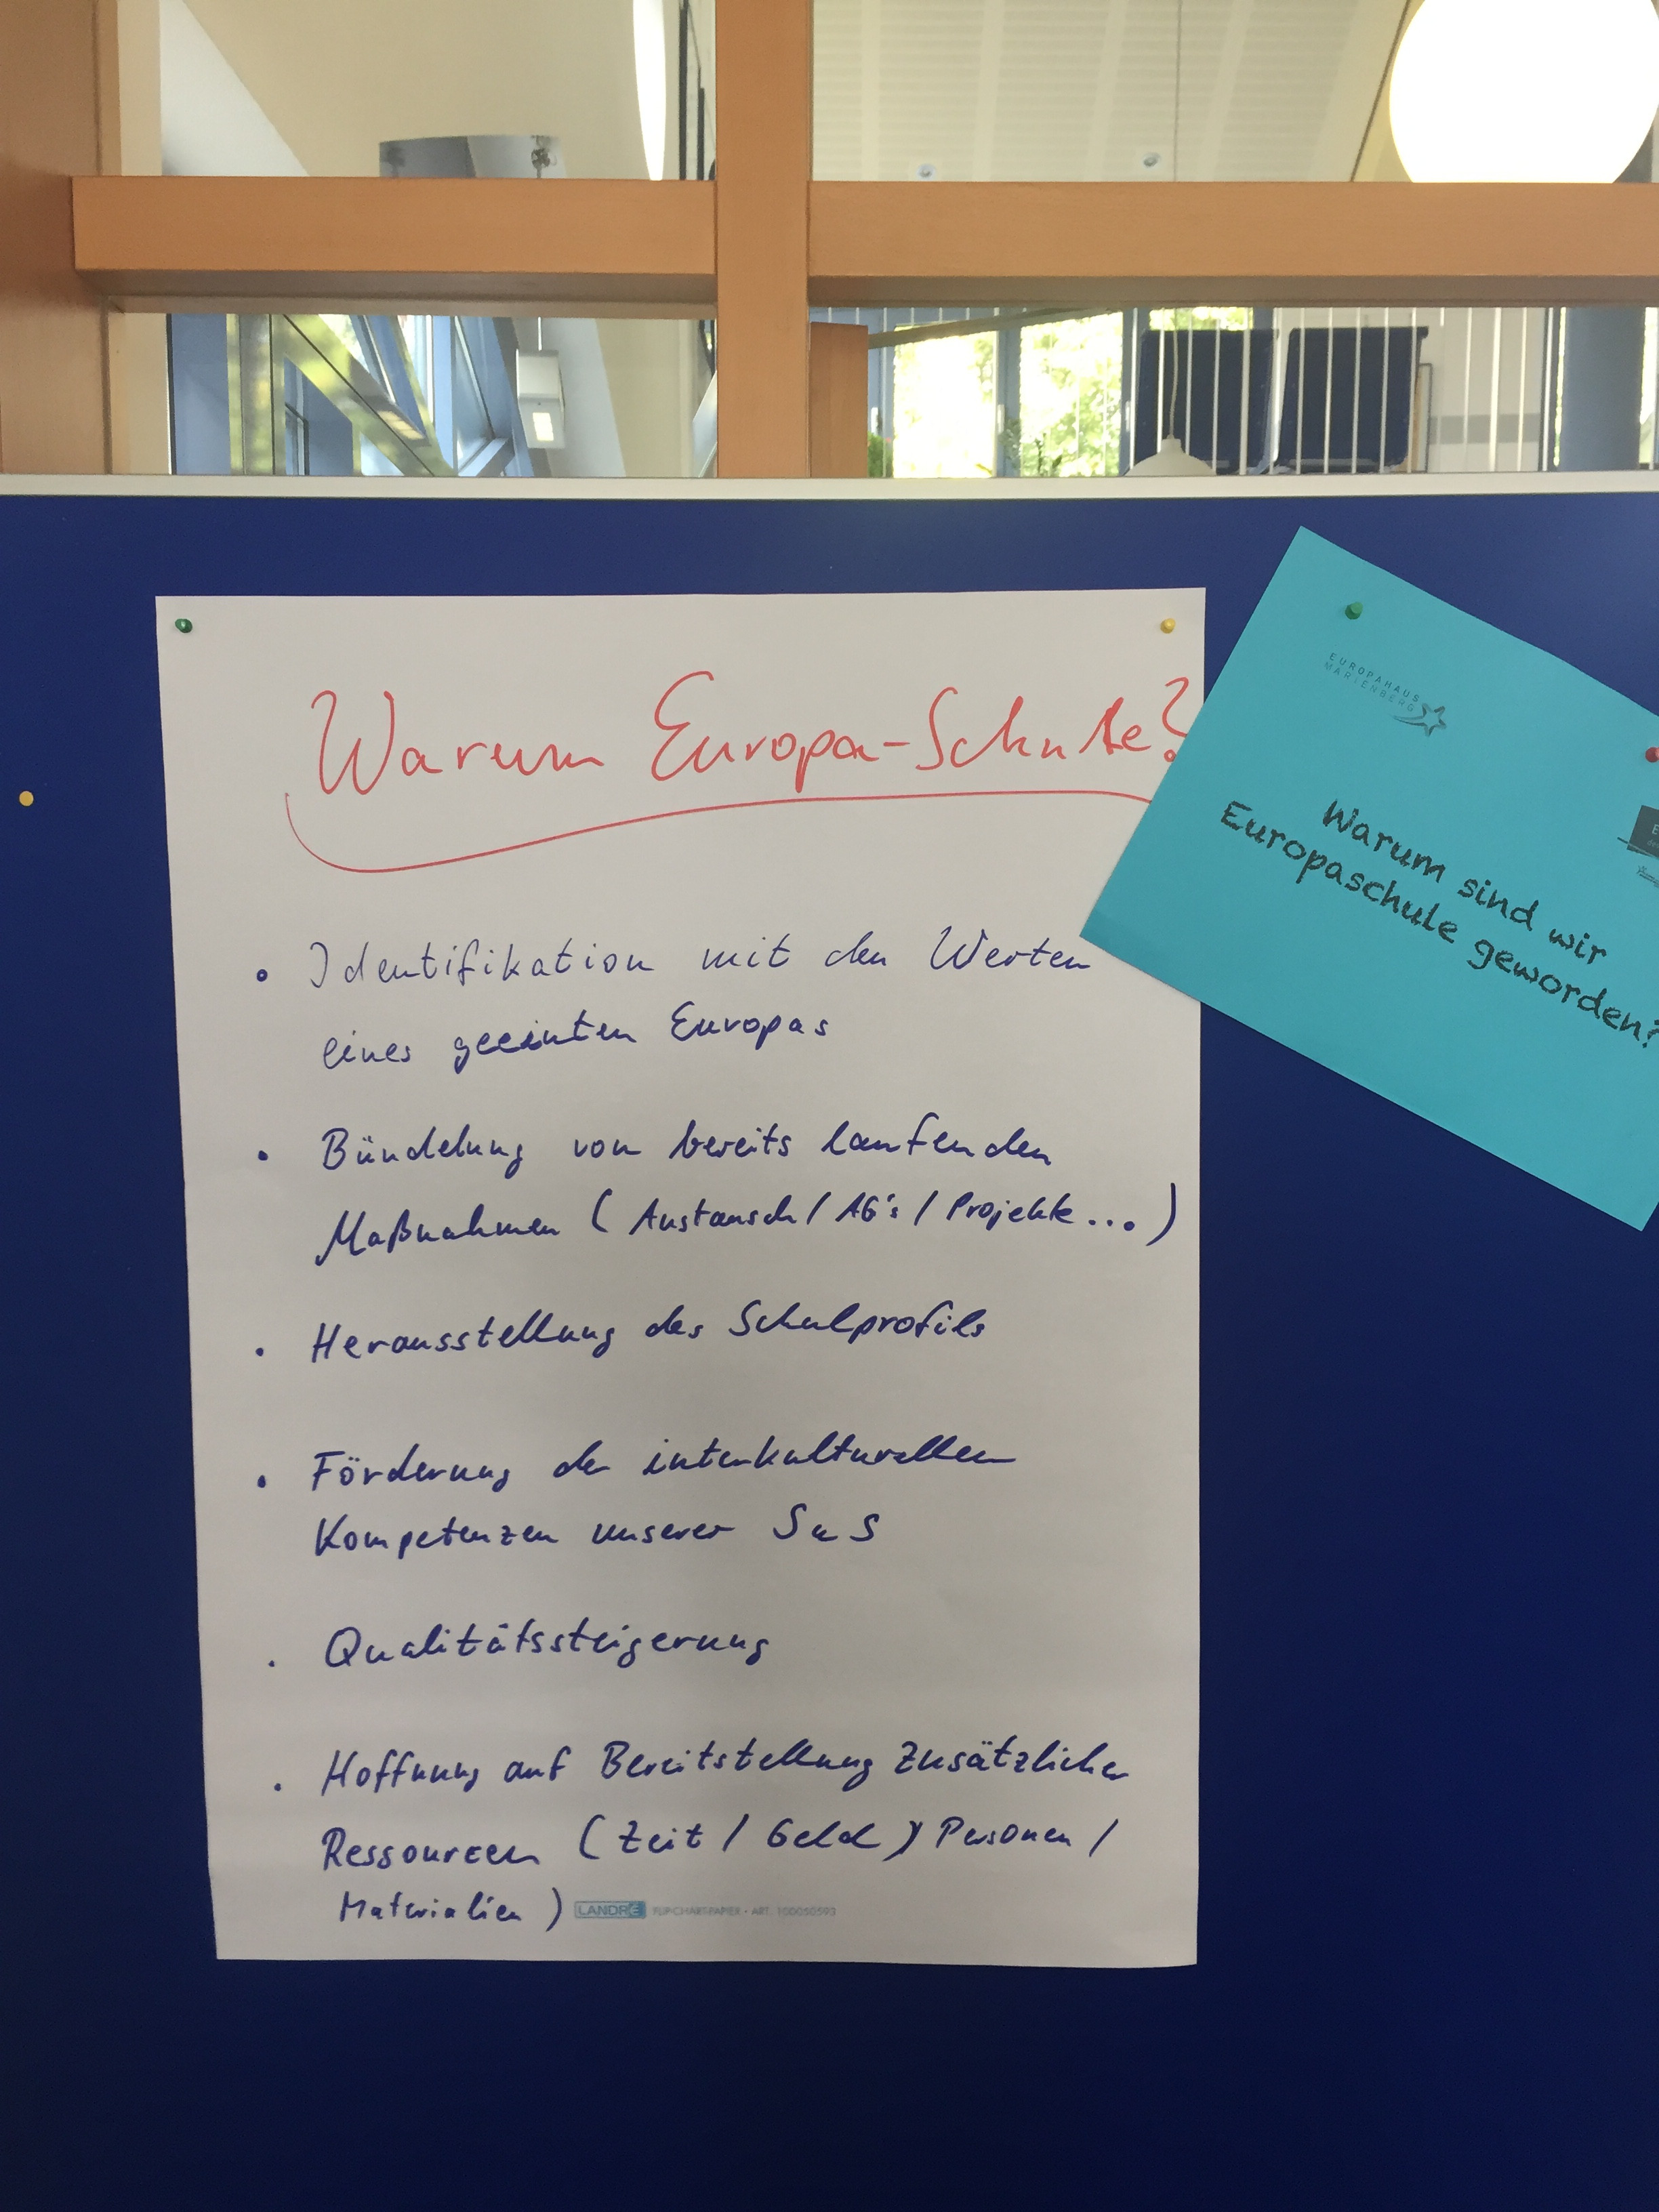 Warum Europa-Schule?
• Identifikation mit den Werten
eines geeinten Europas
• Bündelung von bereits laufenden
Maßnahmen (Austausch / AG's / Projekte...)
• Herausstellung des Schulprofils
• Förderung der interkulturellen
Kompetenzen unserer SuS
• Qualitätssteigerung
• Hoffnung auf Bereitstellung zusätzlicher
Ressourcen (Zeit / Geld / Personen /
Materialien)
LANDRÉ FLIPCHARTPAPIER • ART. 100050593
EUROPAHAUS
MARIENBERG
Warum sind wir
Europaschule geworden?